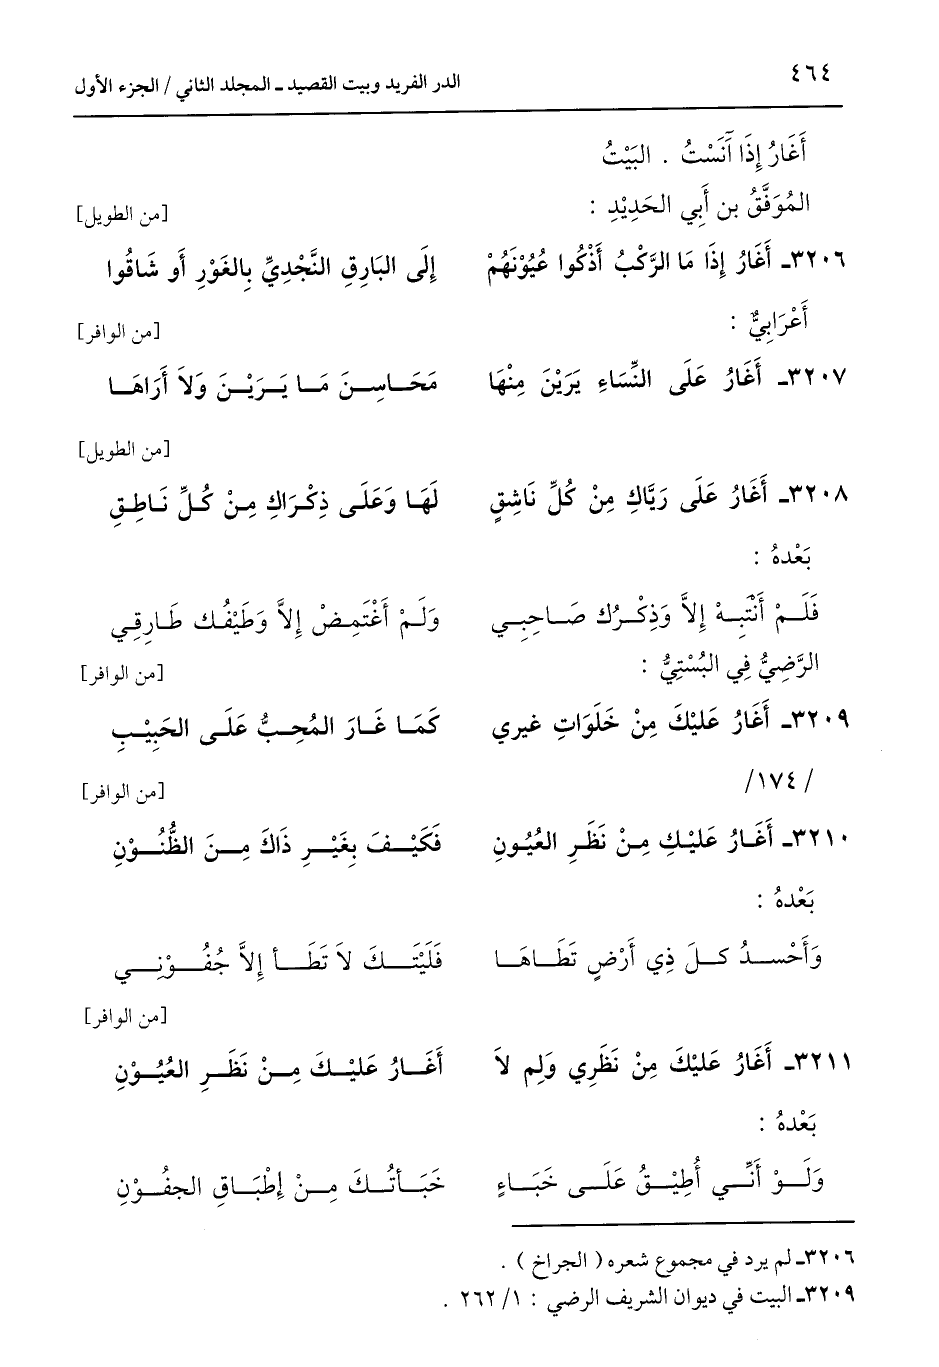 ٤٦٤
الدر الفريد وبيت القصيد ـ المجلد الثاني / الجزء الأول
أَغَارُ إِذَا آنَسْتُ . البَيْتُ
المُوَفَّقُ بن أَبِي الحَدِيْدِ :
[من الطويل]
٣٢٠٦ـ أَغَارُ إِذَا مَا الرَّكْبُ أَذْكُوا عُيُوْنَهُمْ إِلَى البَارِقِ النَّجْدِيِّ بِالغَوْرِ أَو شَاقُوا
أَعْرَابِيٌّ :
[من الوافر]
٣٢٠٧ـ أَغَارُ عَلَى النِّسَاءِ يَرَيْنَ مِنْهَا مَحَاسِنَ مَا يَرَيْنَ وَلاَ أَرَاهَا
[من الطويل]
٣٢٠٨ـ أَغَارُ عَلَى رَيَّاكِ مِنْ كُلِّ نَاشِقٍ لَهَا وَعَلَى ذِكْرَاكِ مِنْ كُلِّ نَاطِقِ
بَعْدهُ :
فَلَمْ أَنْتَبِهْ إِلاَّ وَذِكْرُك صَاحِبِي وَلَمْ أَغْتَمِضْ إِلاَّ وَطَيْفُك طَارِقِي
الرَّضِيُّ فِي البُسْتِيُّ :
[من الوافر]
٣٢٠٩ـ أَغَارُ عَلَيْكَ مِنْ خَلَوَاتِ غيري كَمَا غَارَ المُحِبُّ عَلَى الحَبِيْبِ
/١٧٤/
[من الوافر]
٣٢١٠ـ أَغَارُ عَلَيْكِ مِنْ نَظَرِ العُيُونِ فَكَيْفَ بِغَيْرِ ذَاكَ مِنَ الظُّنُوْنِ
بَعْدهُ :
وَأَحْسدُ كلَ ذِي أَرْضٍ تَطَاهَا فَلَيْتَكَ لاَ تَطَأ إِلاَّ جُفُوْنِي
[من الوافر]
٣٢١١ـ أَغَارُ عَلَيْكَ مِنْ نَظَرِي وَلِم لاَ أَغَارُ عَلَيْكَ مِنْ نَظَرِ العُيُوْنِ
بَعْدهُ :
وَلَوْ أَنِّي أُطِيْقُ عَلَى خَبَاءٍ خَبَأتُكَ مِنْ إِطْبَاقِ الجفُوْنِ
٣٢٠٦ـ لم يرد في مجموع شعره ( الجراخ ) .
٣٢٠٩ـ البيت في ديوان الشريف الرضي : ١/ ٢٦٢ .